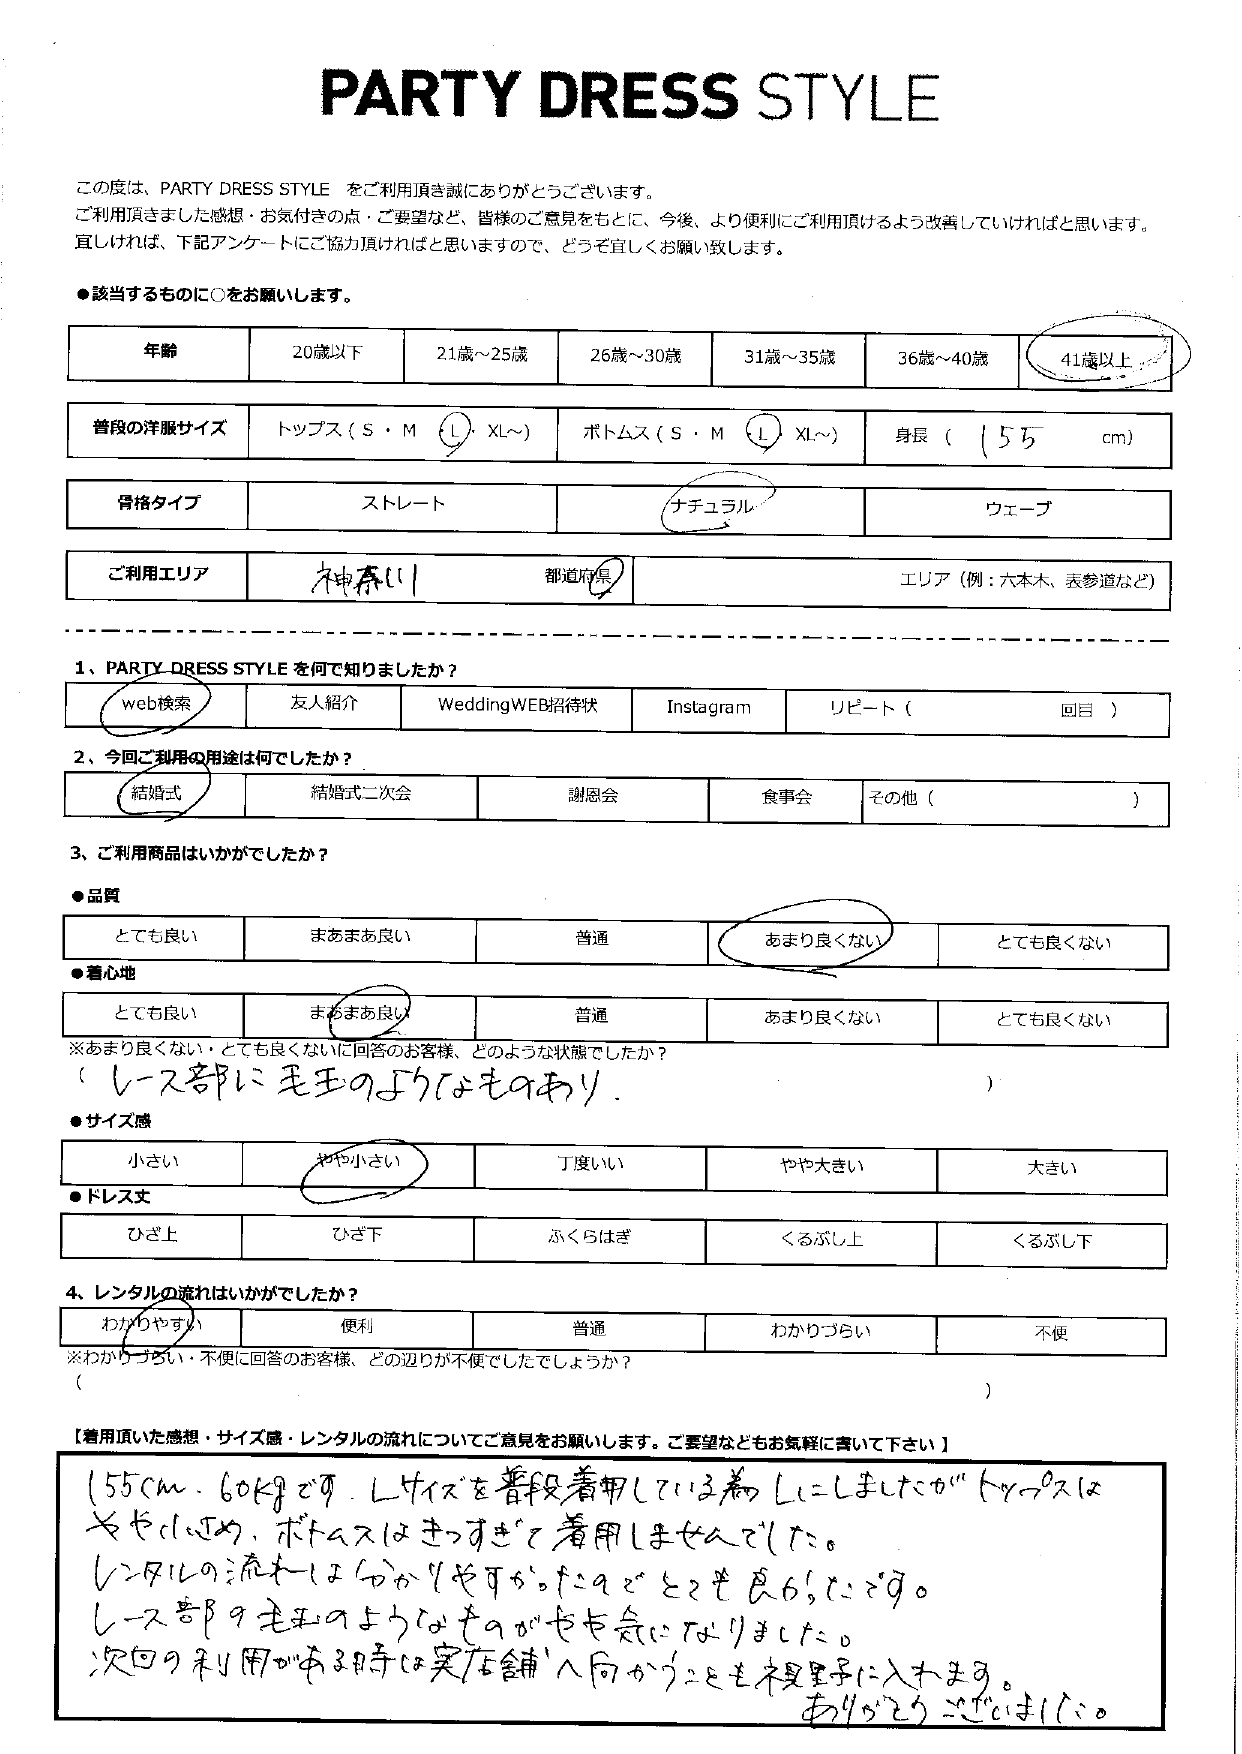 PARTY DRESS STYLE
この度は、PARTY DRESS STYLE をご利用頂き誠にありがとうございます。
ご利用頂きました感想・お気付きの点・ご要望など、皆様のご意見をもとに、今後、より便利にご利用頂けるよう改善していければと思います。
宜しければ、下記アンケートにご協力頂ければと思いますので、どうぞ宜しくお願い致します。
●該当するものに○をお願いします。
年齢 20歳以下 21歳～25歳 26歳～30歳 31歳～35歳 36歳～40歳 41歳以上
普段の洋服サイズ トップス ( S ・ M ・ L ・ XL～) ボトムス ( S ・ M ・ L ・ XL～) 身長 ( 155 cm)
骨格タイプ ストレート ナチュラル ウェーブ
ご利用エリア 神奈川 都道府県 エリア（例：六本木、表参道など）
1、PARTY DRESS STYLE を何で知りましたか？
web検索 友人紹介 WeddingWEB招待状 Instagram リピート ( 回目 )
2、今回ご利用の用途は何でしたか？
結婚式 結婚式二次会 謝恩会 食事会 その他 ( )
3、ご利用商品はいかがでしたか？
●品質
とても良い まあまあ良い 普通 あまり良くない とても良くない
●着心地
とても良い まあまあ良い 普通 あまり良くない とても良くない
※あまり良くない・とても良くないに回答のお客様、どのような状態でしたか？
( レース部に毛玉のようなものあり. )
●サイズ感
小さい やや小さい 丁度いい やや大きい 大きい
●ドレス丈
ひざ上 ひざ下 ふくらはぎ くるぶし上 くるぶし下
4、レンタルの流れはいかがでしたか？
わかりやすい 便利 普通 わかりづらい 不便
※わかりづらい・不便に回答のお客様、どの辺りが不便でしたでしょうか？
( )
【着用頂いた感想・サイズ感・レンタルの流れについてご意見をお願いします。ご要望などもお気軽に書いて下さい】
155cm. 60kgです. Lサイズを普段着用している為Lにしましたがトップスは
やや小さめ、ボトムスはきつすぎて着用しませんでした。
レンタルの流れは分かりやすかったのでとても良かったです。
レース部の毛玉のようなものがやや気になりました。
次回の利用がある時は実店舗へ向かうことも視野に入れます。
ありがとうございました。